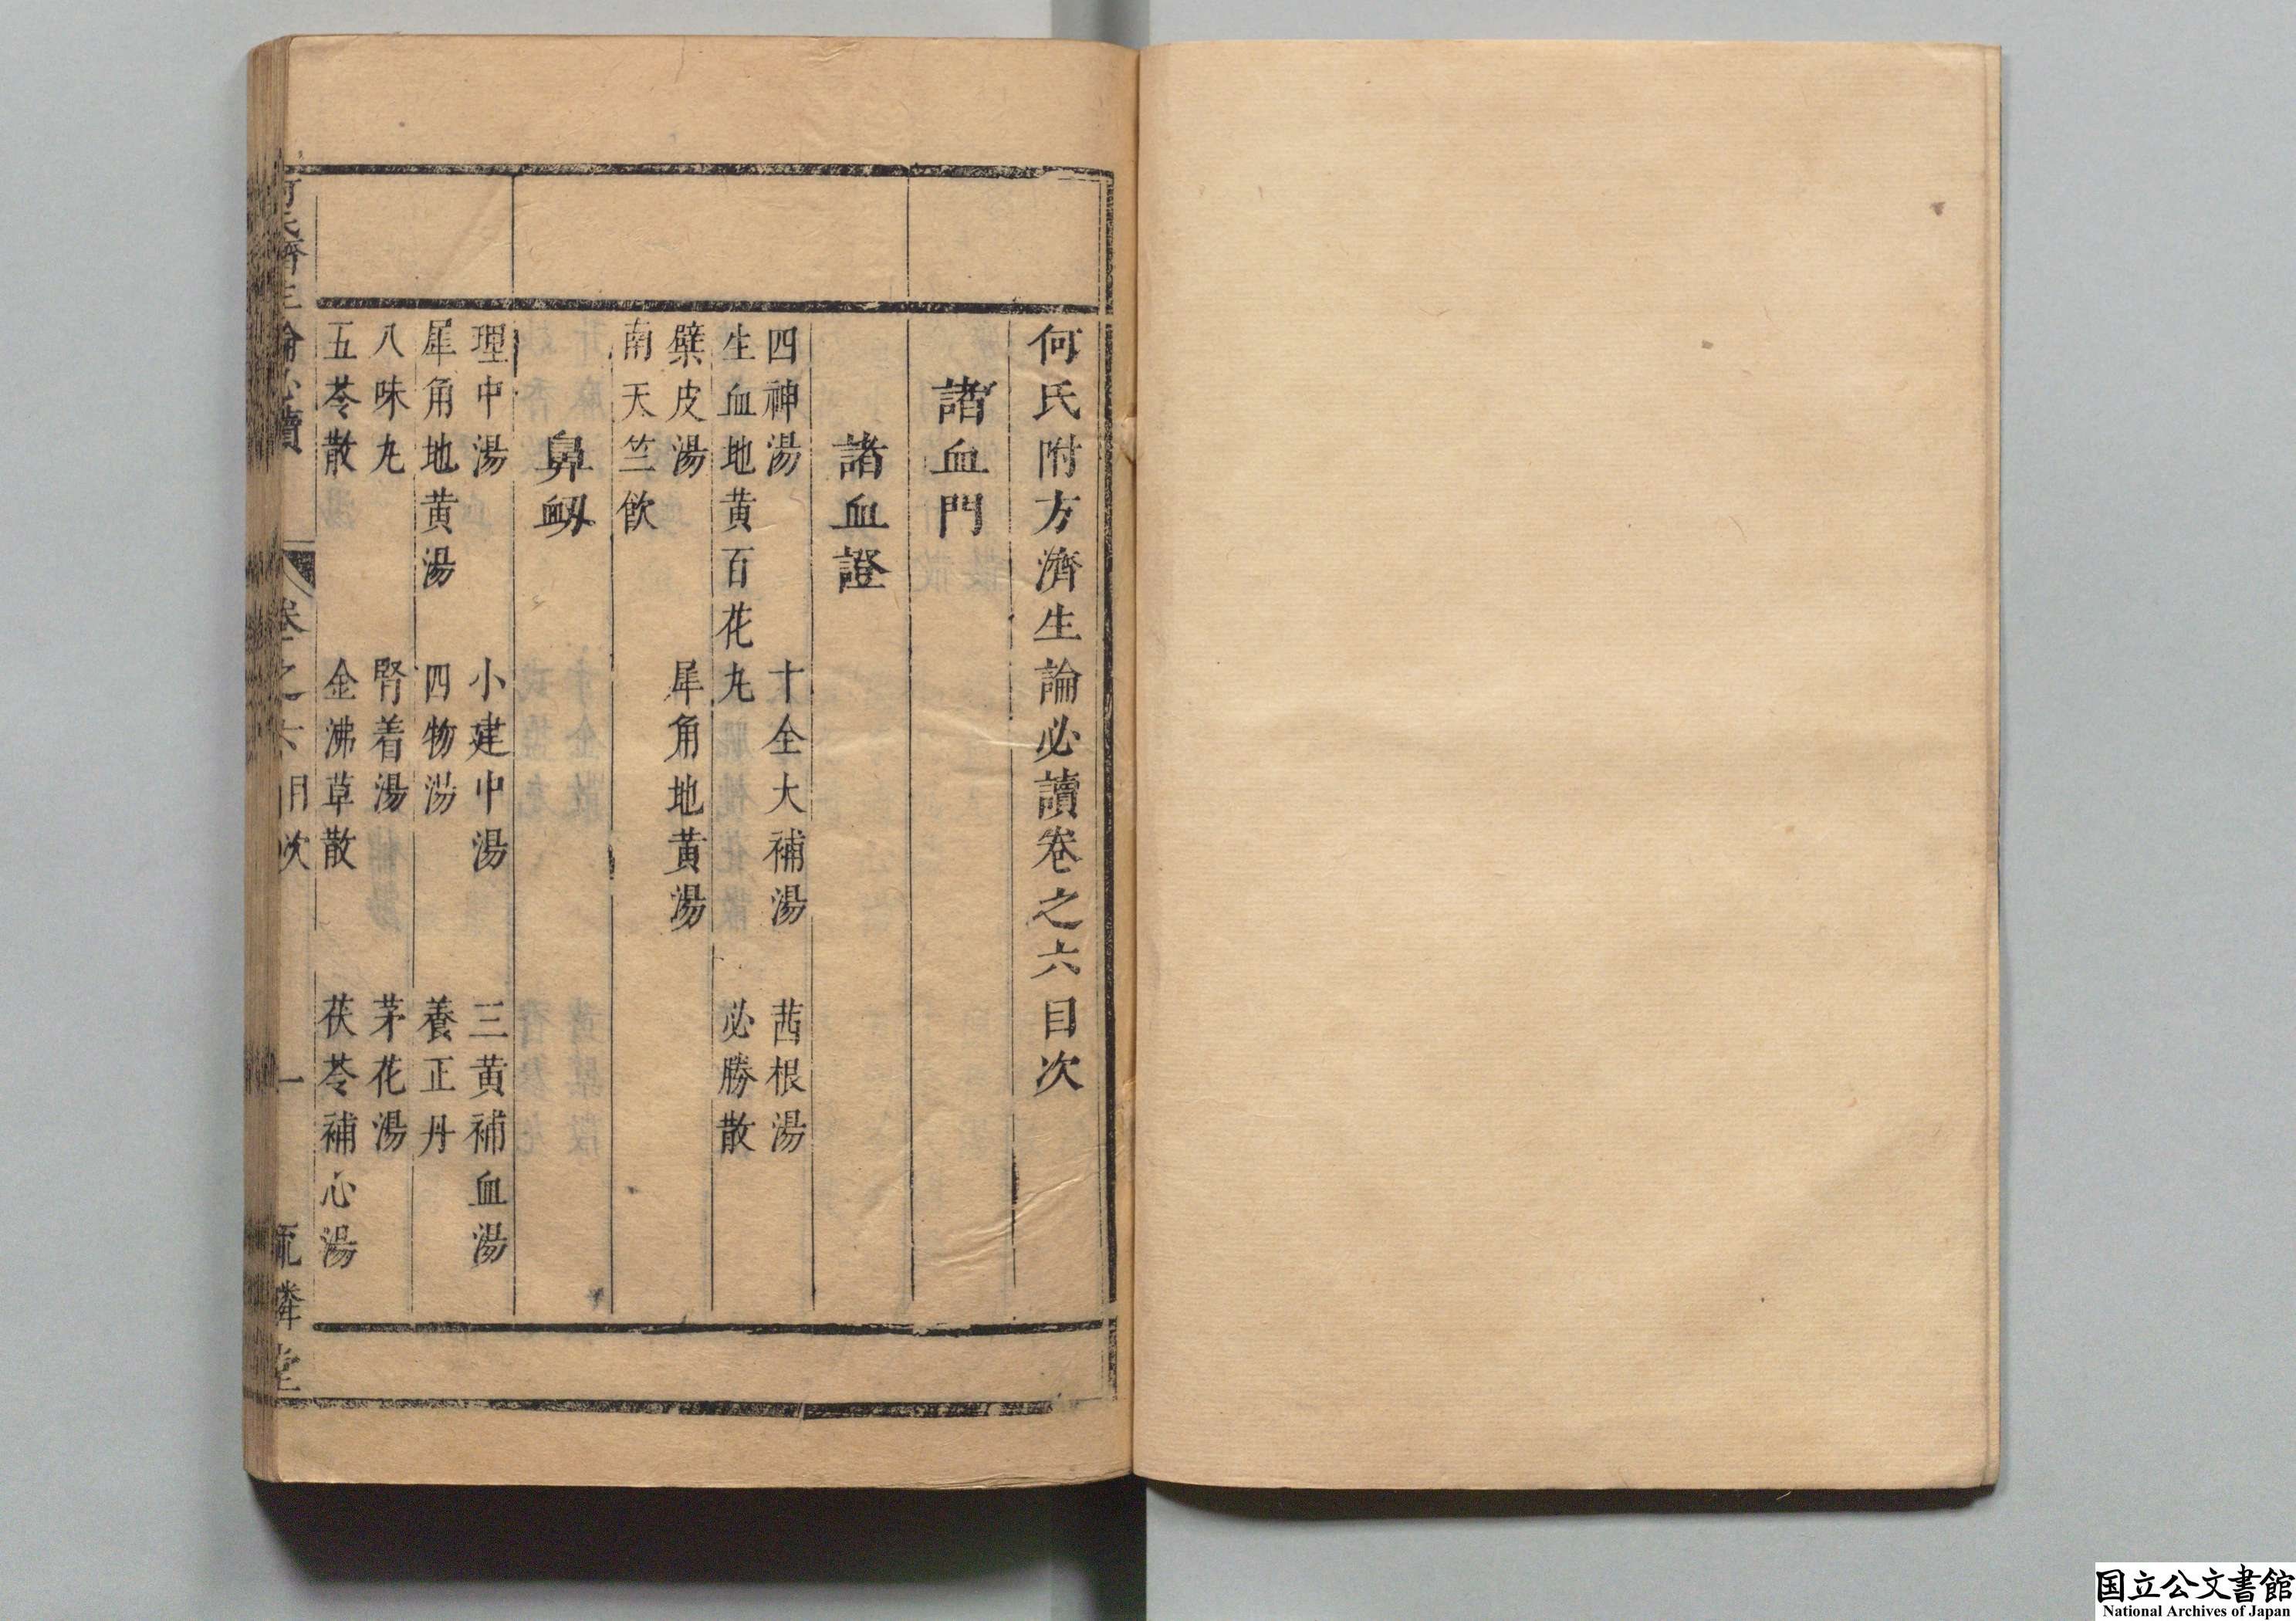 何氏附方濟生論必讀卷之六目次
諸血門
諸血證
四神湯　十全大補湯　茜根湯
生血地黄百花丸　必勝散
檗皮湯　犀角地黄湯
南天竺飲
鼻衂
理中湯　小建中湯　三黄補血湯
犀角地黄湯　四物湯　養正丹
八味丸　腎着湯　茅花湯
五苓散　金沸草散　茯苓補心湯
何氏濟生論必讀　卷之六目次　一
国立公文書館
National Archives of Japan